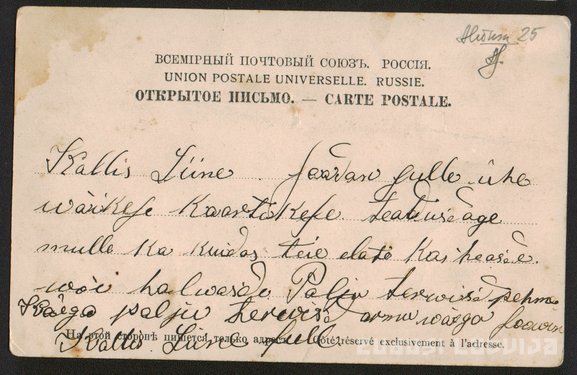 25
ВСЕМІРНЫЙ ПОЧТОВЫЙ СОЮЗЪ. РОССІЯ.
UNION POSTALE UNIVERSELLE. RUSSIE.
ОТКРЫТОЕ ПИСЬМО. — CARTE POSTALE.
Kallis Liine. Saadan sulle ühe
wäikese kaartikese teatusäge
mulle ka kuidas teie elate kas heaste
wõi halwaste Palju terwisi
Wäega palju terwisi armu wäega
На этой сторонѣ пишется только адресъ. Côté réservé exclusivement à l'adresse.
Kallis Liine sulle